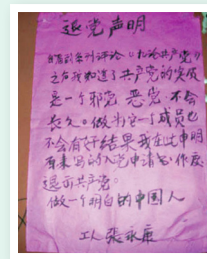 退党声明
自看到系列评论《九论共产党》
之后我知道了共产党的实质
是一个邪党 恶党 不会
长久。做为它一个成员也
不会有好结果我在此申明
原来写的入党申请书作废
退出共产党。
做一个明白的中国人
工人 张永康